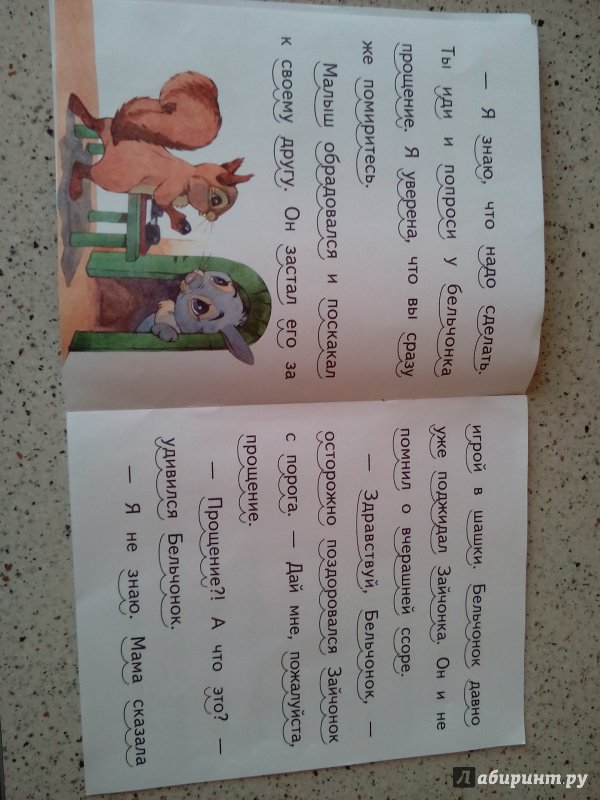 — Я знаю, что надо сделать.
Ты иди и попроси у бельчонка
прощение. Я уверена, что вы сразу
же помиритесь.
Малыш обрадовался и поскакал
к своему другу. Он застал его за
игрой в шашки. Бельчонок давно
уже поджидал Зайчонка. Он и не
помнил о вчерашней ссоре.
— Здравствуй, Бельчонок, —
осторожно поздоровался Зайчонок
с порога. — Дай мне, пожалуйста,
прощение.
— Прощение?! А что это? —
удивился Бельчонок.
— Я не знаю. Мама сказала
Лабиринт.ру